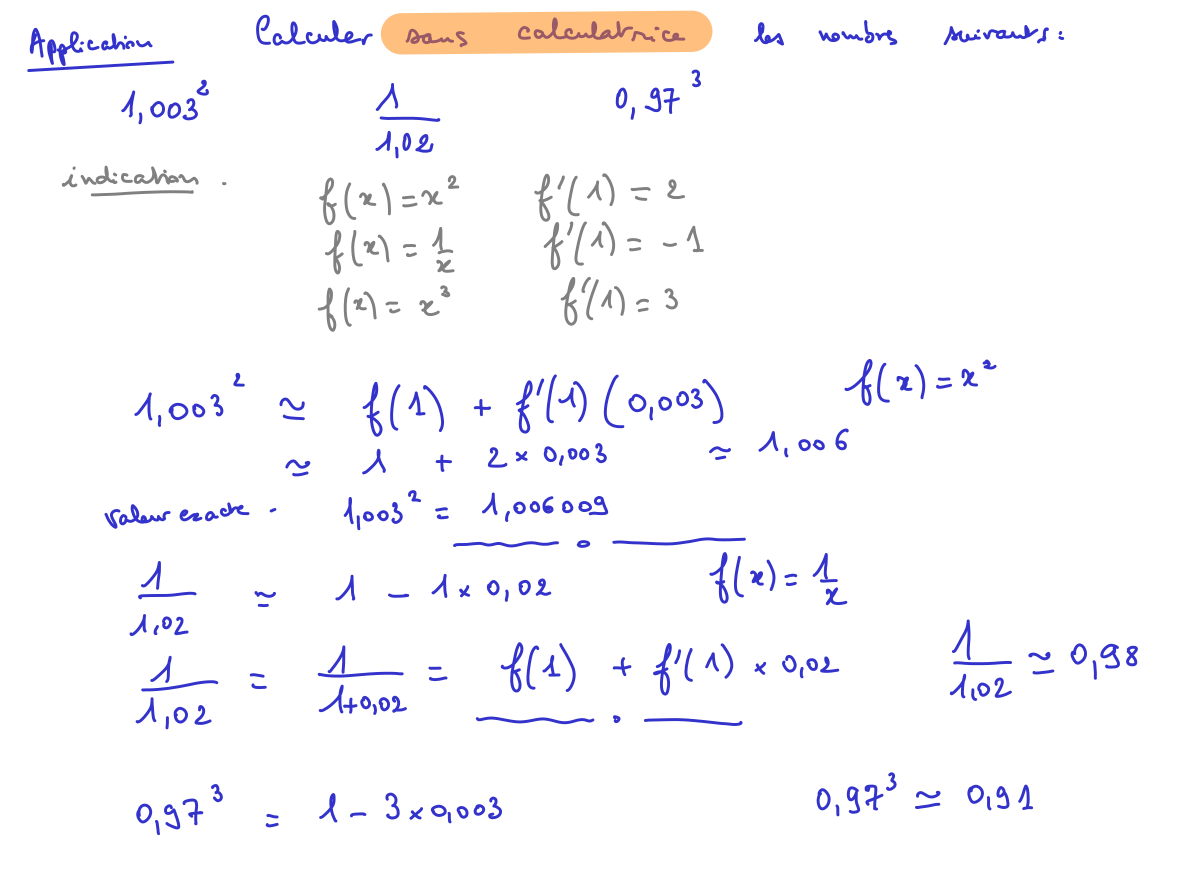 Application Calculer sans calculatrice les nombres suivants :
1,003² 1/1,02 0,97³
indication . f(x) = x² f'(1) = 2
f(x) = 1/x f'(1) = -1
f(x) = x³ f'(1) = 3
1,003² ≃ f(1) + f'(1) (0,003) f(x) = x²
≃ 1 + 2 × 0,003 ≃ 1,006
valeur exacte . 1,003² = 1,006009
1/1,02 ≃ 1 - 1 × 0,02 f(x) = 1/x
1/1,02 = 1/1+0,02 = f(1) + f'(1) × 0,02 1/1,02 ≃ 0,98
0,97³ = 1 - 3 × 0,003 0,97³ ≃ 0,91